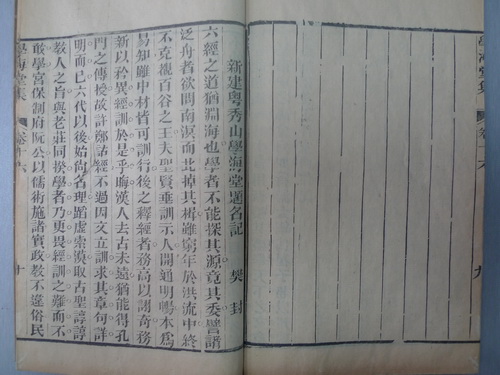 學海堂集
卷十六
九
新建粵秀山學海堂題名記
樊封
六經之道猶淵海也學者不能探其源竟其委譬諸
泛舟者欲問南溟而北掉其楫雖窮年於洪流中終
不克覩百谷之王夫聖賢垂訓示人開通明暢本為
易知雖中材皆可訓行後之釋經者務高以誇奇務
新以矜異經訓於是乎晦漢人去古未遠猶能得孔
門之傳授故許鄭詁經不過因文立訓求其章句詳
明而已六代以後始尚名理蹈虛索漠取古聖諄諄
教人之旨與老莊同揆學者乃更畏經訓之難而不
敢學宮保制府阮公以儒術施諸實政教不違俗民
學海堂集
卷十六
十